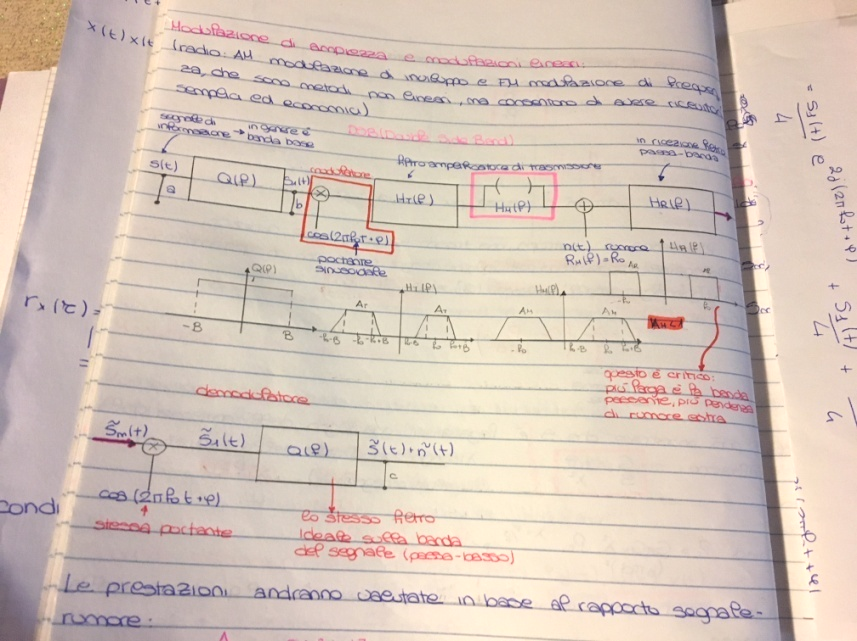 Modulazione di ampiezza e modulazioni lineari:
x(t) x(t
(radio: AM modulazione di inviluppo e FM modulazione di frequen
za, che sono metodi non lineari, ma consentono di avere ricevitori
semplici ed economici)
DSB (Double Side Band)
segnale di
informazione → in genere è
banda base
modulatore
filtro amplificatore di trasmissione
in ricezione filtro
passa-banda
s(t)
a
Q(f)
b
HT(f)
HM(f)
HR(f)
cos(2πf0t+φ)
portante
sinusoidale
n(t) rumore
Q(f)
-B
B
HT(f)
AT
AT
f0-B
f0
f0+B
HM(f)
AM
AM
-f0
f0-B
f0
f0+B
questo è critico:
più larga è la banda
passante, più
di rumore entra
demodulatore
s̃m(t)
s̃1(t)
Q(f)
s̃(t)+ñ(t)
c
cos(2πf0t+φ)
stessa portante
lo stesso filtro
ideale sulla banda
del segnale (passa-basso)
rx(τ)=
=
condi
Le prestazioni andranno valutate in base al rapporto segnale-
rumore: